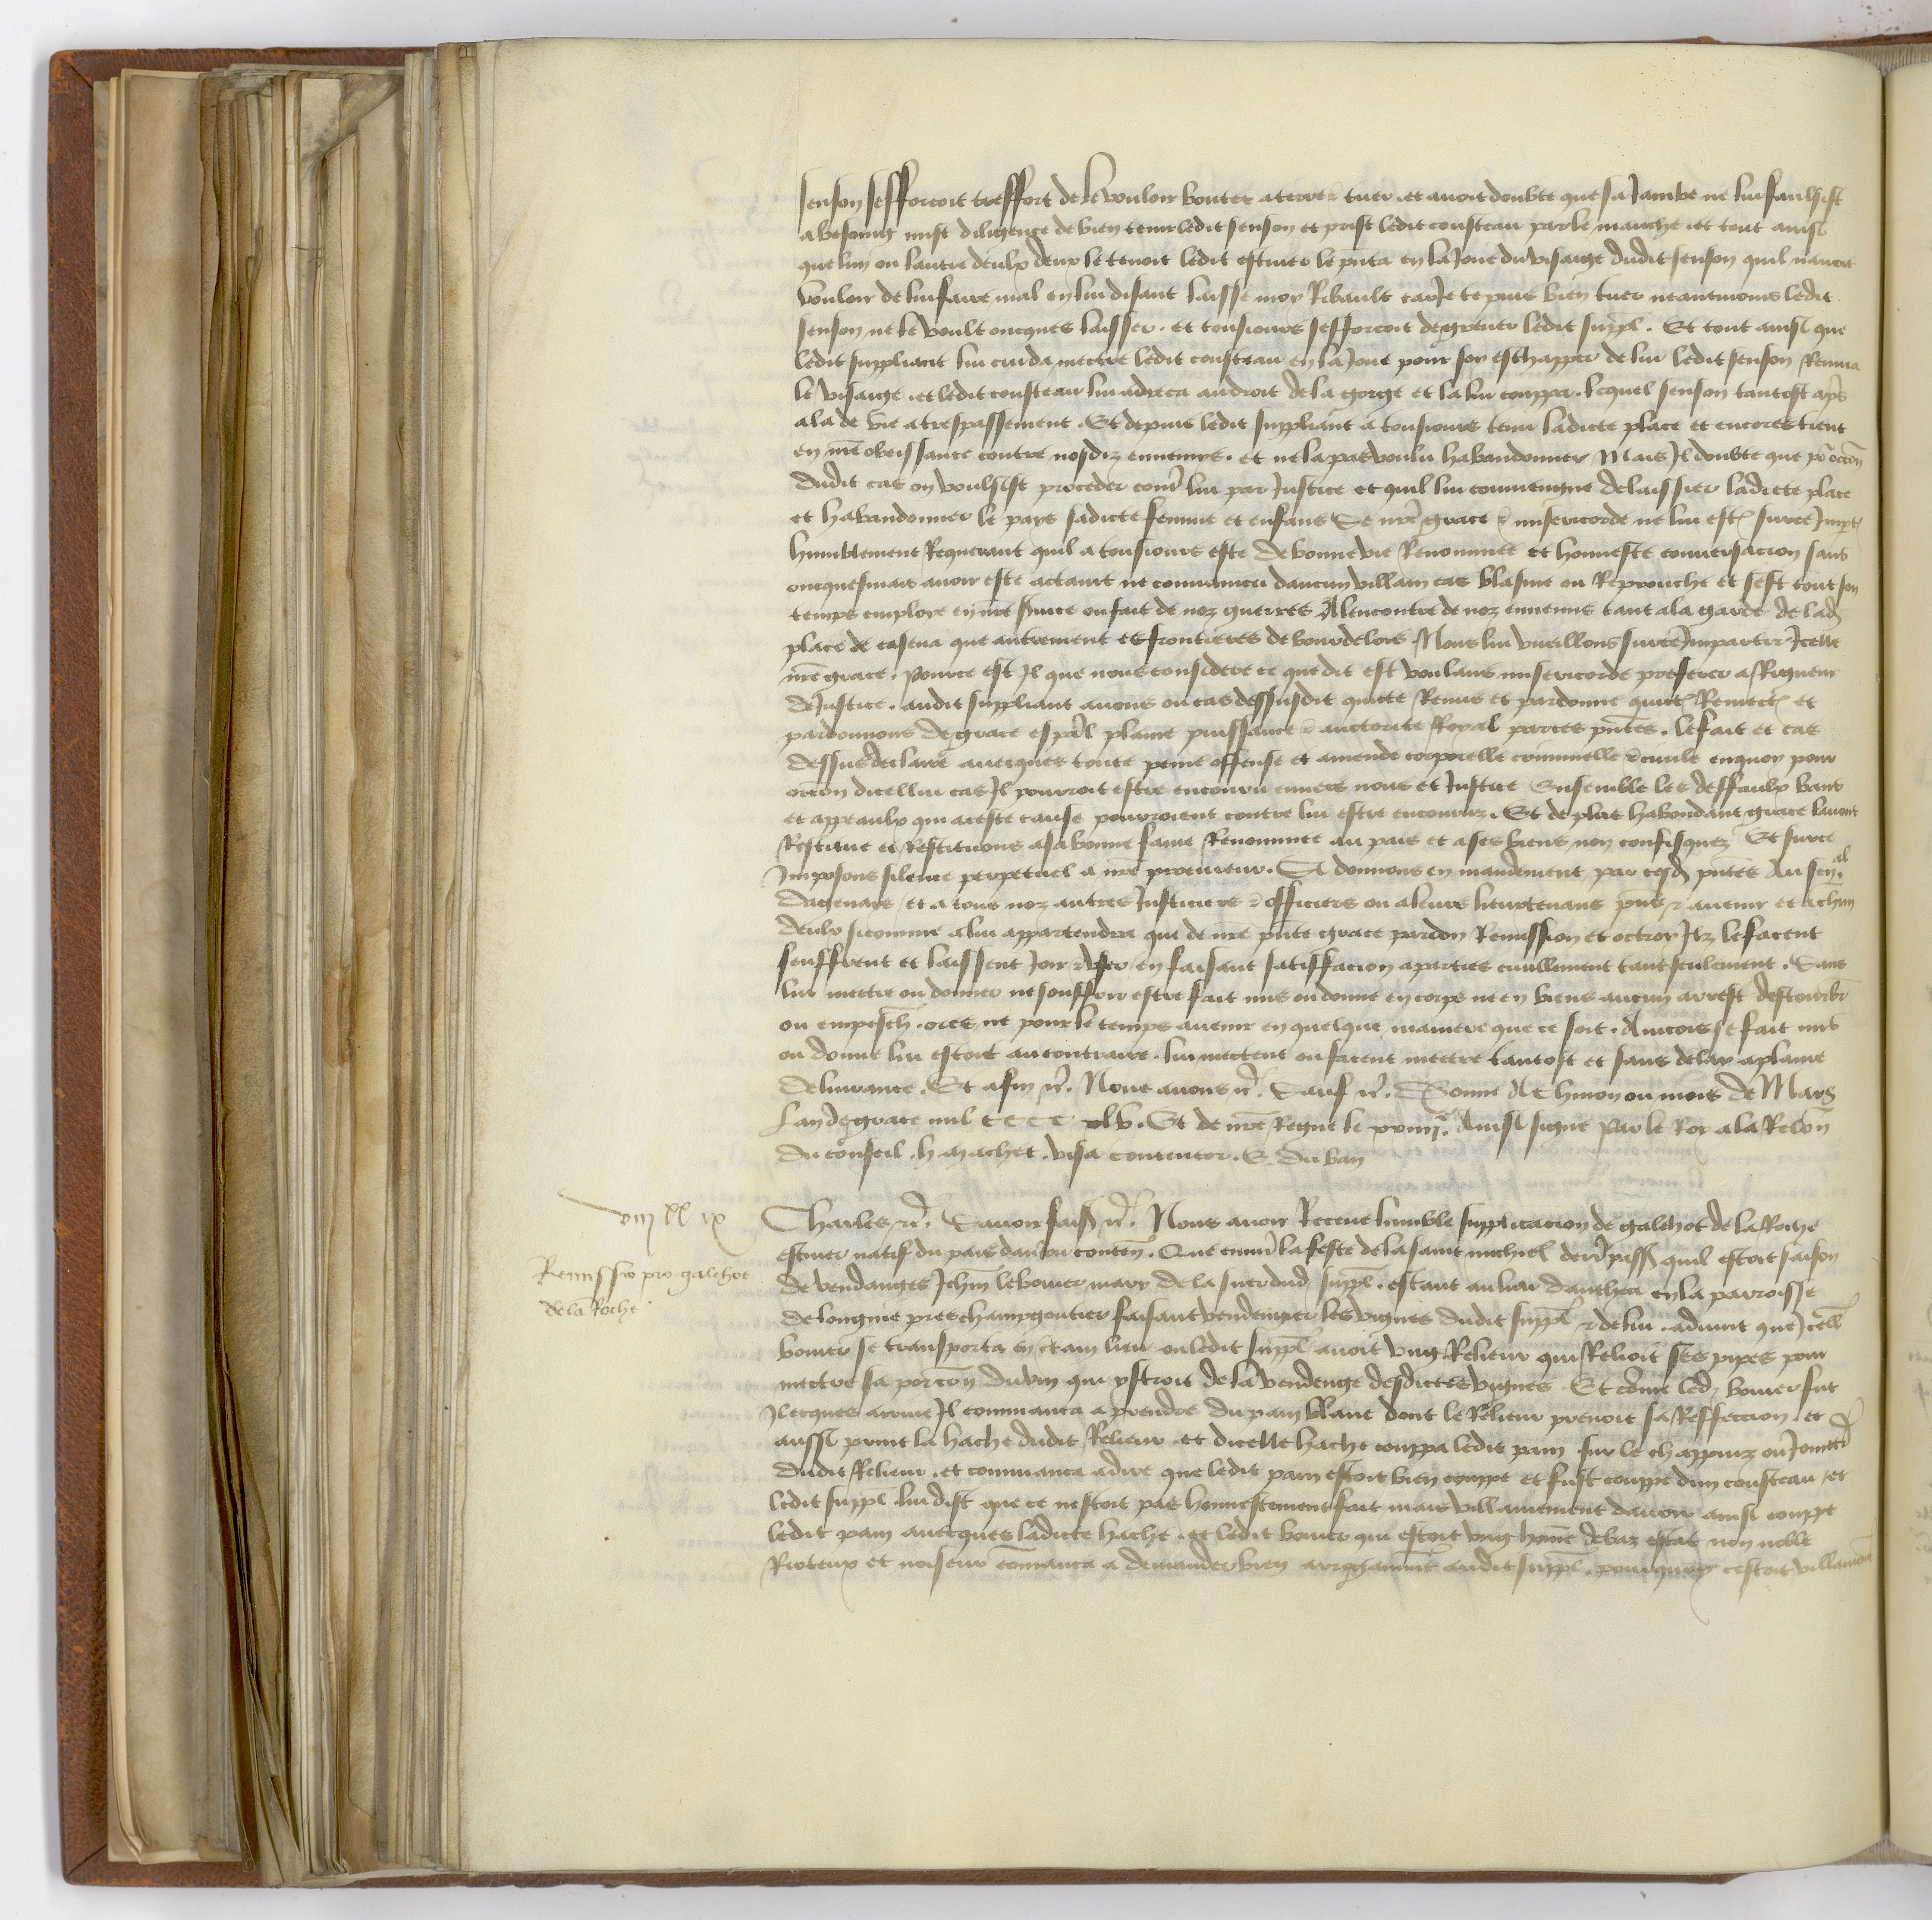 senson sefforcoit tresfort de le vouloir bouter a terre & tuer . et avoit doubte que sa Jambe ne lui faulsist
a besoing mist diligence de bien tenir ledit senson et prist ledit cousteau par le manche . et tout ainsi
que lun ou lautre deulx deux le tenoit ledit escuier le en la Joue du visaige dudit senson quil navoit
vouloir de lui faire mal en lui disant laisse moy Ribault car Je te puis bien tuer neantmoins ledit
senson ne le voult oncques laisser . et tousiours sefforcoit de grever ledit suppl . Et tout ainsi que
ledit suppliant lui cuida mectre ledit cousteau en la Joue pour soy eschapper de lui ledit senson Remua
le visaige . et ledit cousteau lui adreca androit de la gorge et la lui couppa . lequel senson tantost apres
ala de vie a trespassement . Et depuis ledit suppliant a tousiours tenu ladicte place et encores tient
en nre obeissance contre nosdiz ennemys . et ne la pas voulu habandonner Mais Il doubte que po occon
dudit cas on voulsist proceder contre lui par Justice et quil lui conviengne delaissier ladicte place
et habandonner le pays sadicte femme et enfans Se nre grace & misericorde ne lui est sur ce Impt
humblement Requerant quil a tousiours este de bonne vie Renommee et honneste conversacion sans
oncquesmais avoir este actaint ne convaincu daucun villain cas blasme ou Reprouche et sest tout son
temps employe en nre service ou fait de noz guerres Alencontre de noz ennemis tant ala garde de lad
place de casena que autrement es frontieres de bourdelois Nous lui vueillons sur ce Impartir Icelle
nre grace . Pource est Il que nous considere ce que dit est voulans misericorde preferer a Rigueur
de Justice . audit suppliant avons ou cas dessusdit quicte Remis et pardonne quict Remect et
pardonnons de grace espal plaine puissance & auctorite Royal par ces pntes . le fait et cas
dessus declaire avecques toute peine offense et amende corporelle criminelle & civile enquoy pour
occon dicellui cas Il pourroit estre encouru envers nous et Justice Ensemble les deffaulx bans
et appeaulx qui a ceste cause pourroient contre lui estre encouruz . Et de plus habondant grace lavons
Restitue et Restituons a sa bonne fame Renommee au pais et a ses biens non confisquez Et sur ce
Imposons silence perpetuel a nre procureur . Si donnons en mandement par cesd pntes Au senal
dagenays / et a tous noz autres Justiciers & officiers ou a leurs lieuxtenans pns & avenir et a chun
deulx si comme a lui appartendra que de nre pnte grace pardon Remission et octroy Ilz le facent
seuffrent et laissent Joir & user / en faisant satisfacion a parties civillement tant seulement . Sans
lui mectre ou donner ne souffrir estre fait mis ou donne en corps ne en biens aucun arrest destourb
ou empesch . ores ne pour le temps avenir en quelque maniere que ce soit . Aincois se fait mis
ou donne lui estoit au contraire . lui mectent ou facent mectre tantost et sans delay a plaine
delivrance . Et afin &c . Nous avons &c . Sauf &c . Donne A Chinon ou mois de Mars
Lan de grace mil CCCC xlv . Et de nre Regne le xxiiije . Ainsi signe Par le Roy a la Relon
du conseil . h machet . visa contentor . E . du ban
viij xx ix
Remissio pro galehot
de la Roche
Charles &c . Savoir fais &c . Nous avoir Receue humble supplicacion de galehot de la Roche
escuier natif du pais danjou conten . Que environ la feste de la saint michiel derr pass quil estoit saison
de vendanges Jehan le bouer mary de la suer dud suppl . estant au lieu en la parroisse
de longine pres champgontier faisant vendenger les vignes dudit suppl & de lui . advint que Icell
bouer se transporta en certain lieu ou ledit suppl avoit ung Relieur qui Relioit ses pipes pour
mectre sa porcon du vin qui ystroit de la vendenge desdictes vignes . Et come led bouer fut
Ilecques arrive Il commanca a prendre du pain blanc dont le Relieur prenoit sa Reffeccion . et
aussi print la hache dudit Relieur . et dicelle hache couppa ledit pain sur le chappuiz ou
dudit Relieur . et commanca a dire que ledit pain estoit bien couppe et fust couppe dun cousteau / et
ledit suppl lui dist que ce nestoit pas honnestement fait mais villainement davoir ainsi couppe
ledit pain avecques ladicte hache . et ledit bouer qui estoit ung home de bas estat non noble
Rioteux et noiseux commanca a demander bien arrogamment audit suppl . pourquoy cestoit villainem